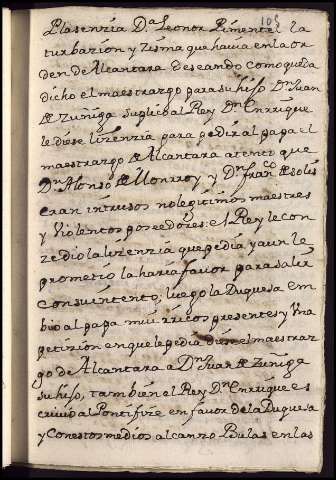 103
Plasenzia Da Leonor Pimentel la
turbazion y Zisma que havia en la or
den de Alcantara deseando como queda
dicho el maestrazgo para su hijo Dn Juan
de Zuñiga suplico al Rey Dn Enrrique
le diese lizenzia para pedir al papa el
maestrazgo de Alcantara atento que
Dn Alonso de Monrroy y Dn Franco de Solis
eran intrusos no legitimos maestres
y Violentos poseedores: el Rey le con
zedio la lizenzia que pedia y aun le
prometio la haria favor para salir
con su intento, luego la Duquesa em
bio al papa mui rricos presentes y Vna
petizion en que le pedia diese el maestraz
go de Alcantara a Dn Juan de Zuñiga
su hijo, tambien el Rey Dn Enrrique es
crivio al Pontifize en favor de la Duquesa
y con estos medios alcanzo Bulas en las